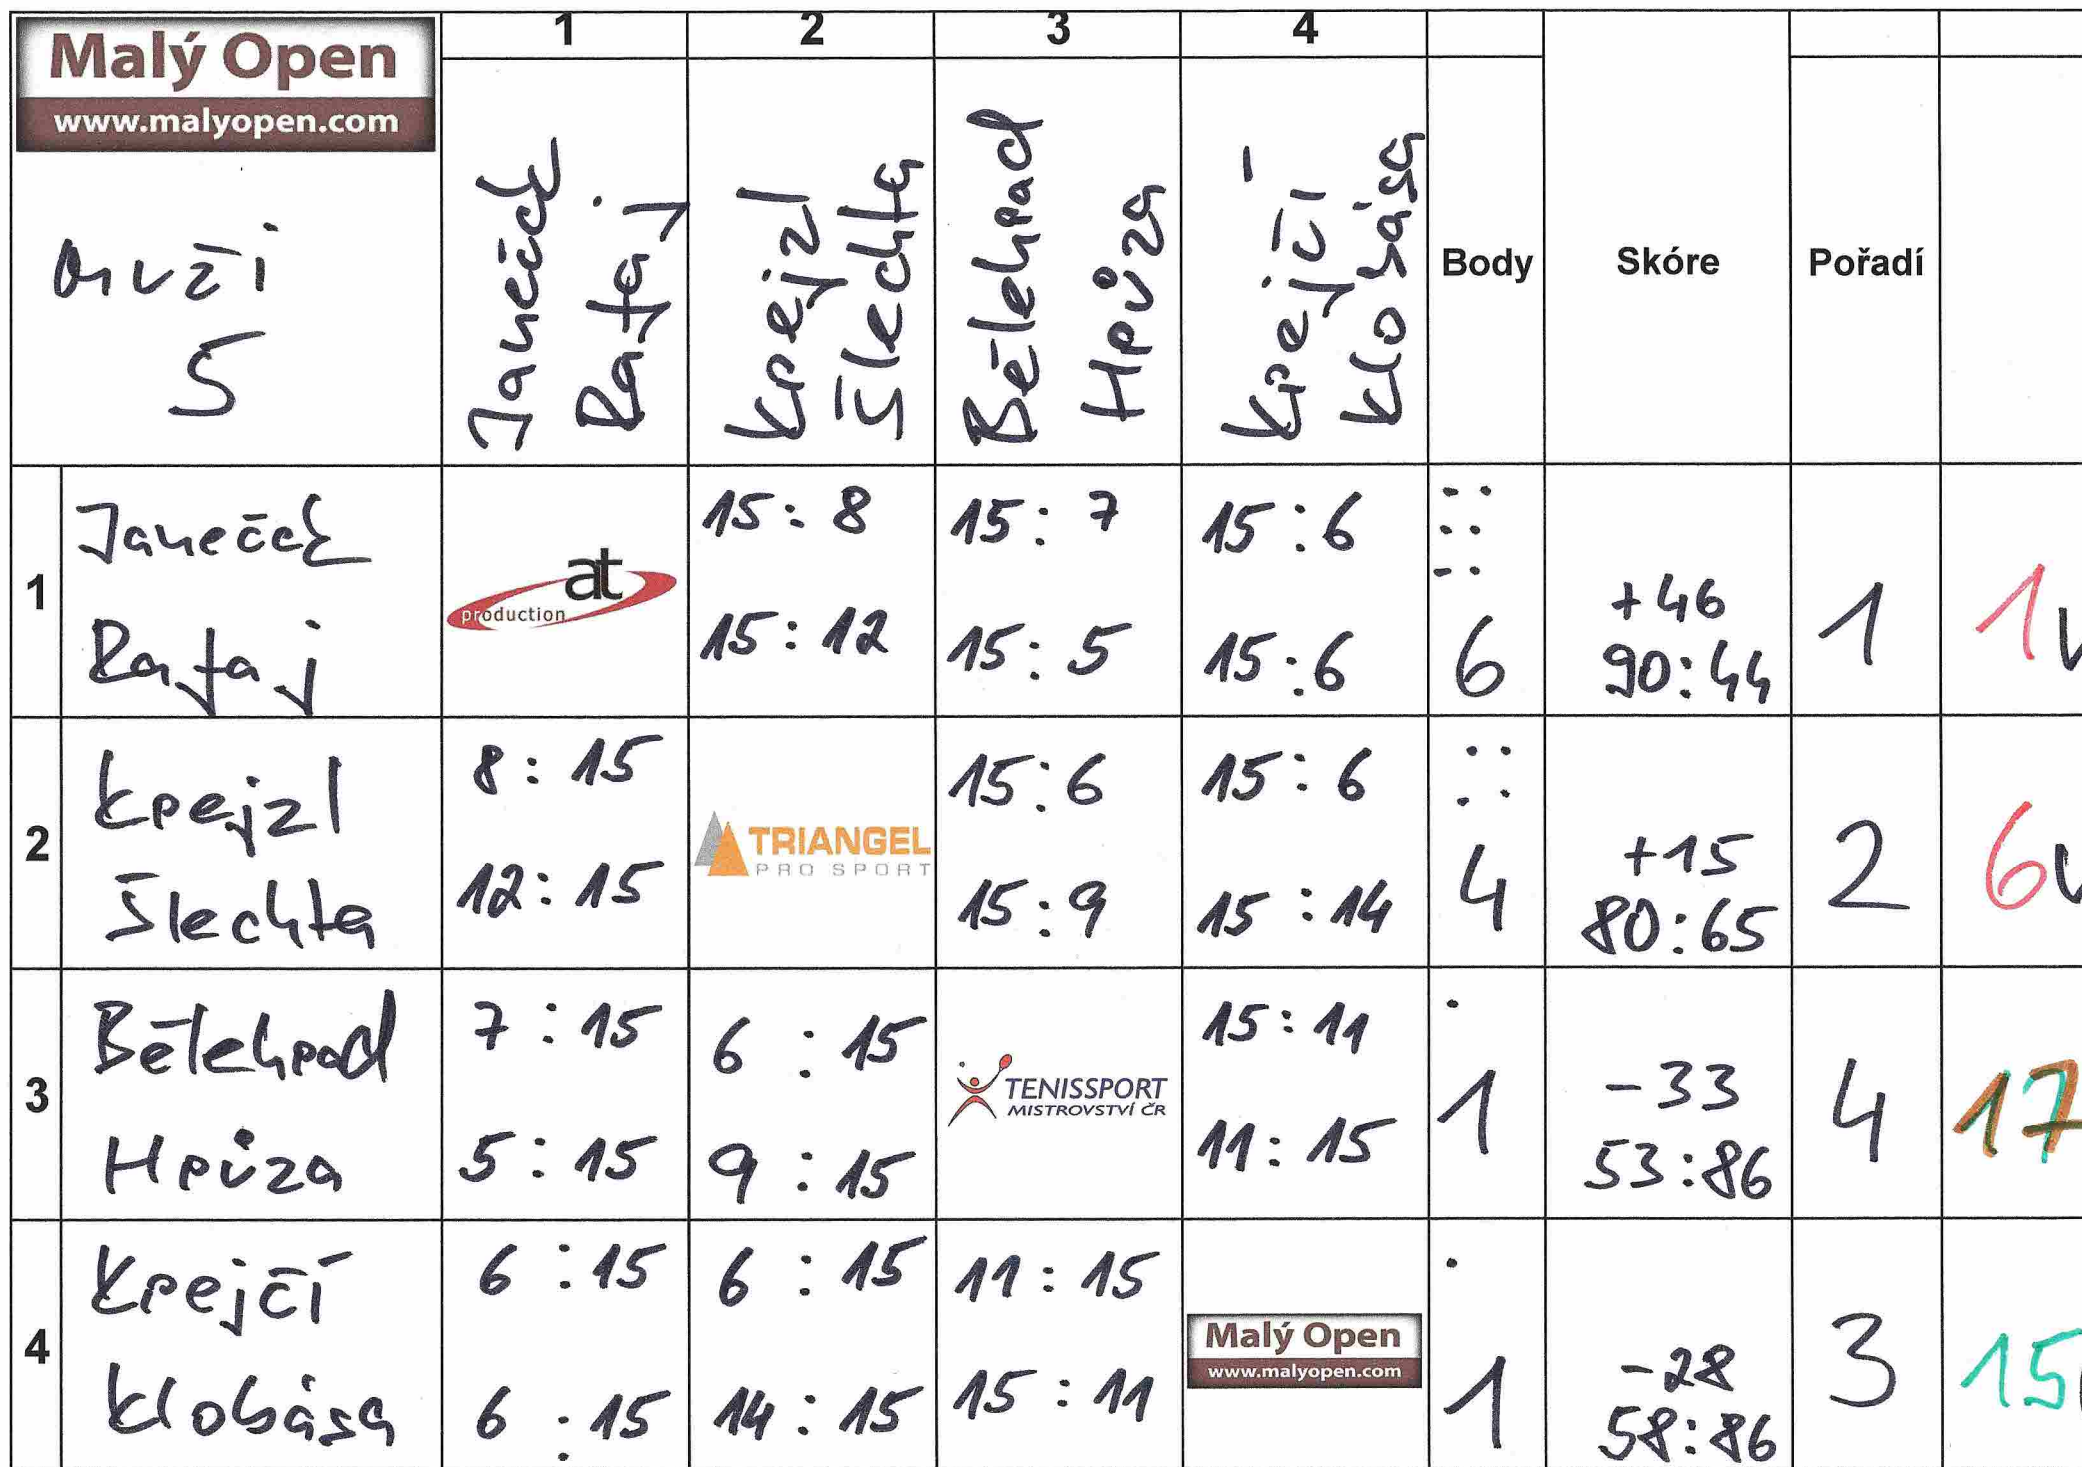 Malý Open
www.malyopen.com
muži
5
1 2 3 4
Janeček
Rataj
Krejzl
Šlechta
Bělehrad
Hrůza
Krejčí
Klobása
Body Skóre Pořadí
1
Janeček
Rataj
at
production
15:8 15:7 15:6
15:12 15:5 15:6
6
+46
90:44
1
1
2
Krejzl
Šlechta
8:15
12:15
TRIANGEL
PRO SPORT
15:6 15:6
15:9 15:14
4
+15
80:65
2
6
3
Bělehrad
Hrůza
7:15 6:15
5:15 9:15
TENISSPORT
MISTROVSTVÍ ČR
15:11
11:15
1
-33
53:86
4
17
4
Krejčí
Klobása
6:15 6:15 11:15
6:15 14:15 15:11
Malý Open
www.malyopen.com
1
-28
58:86
3
15